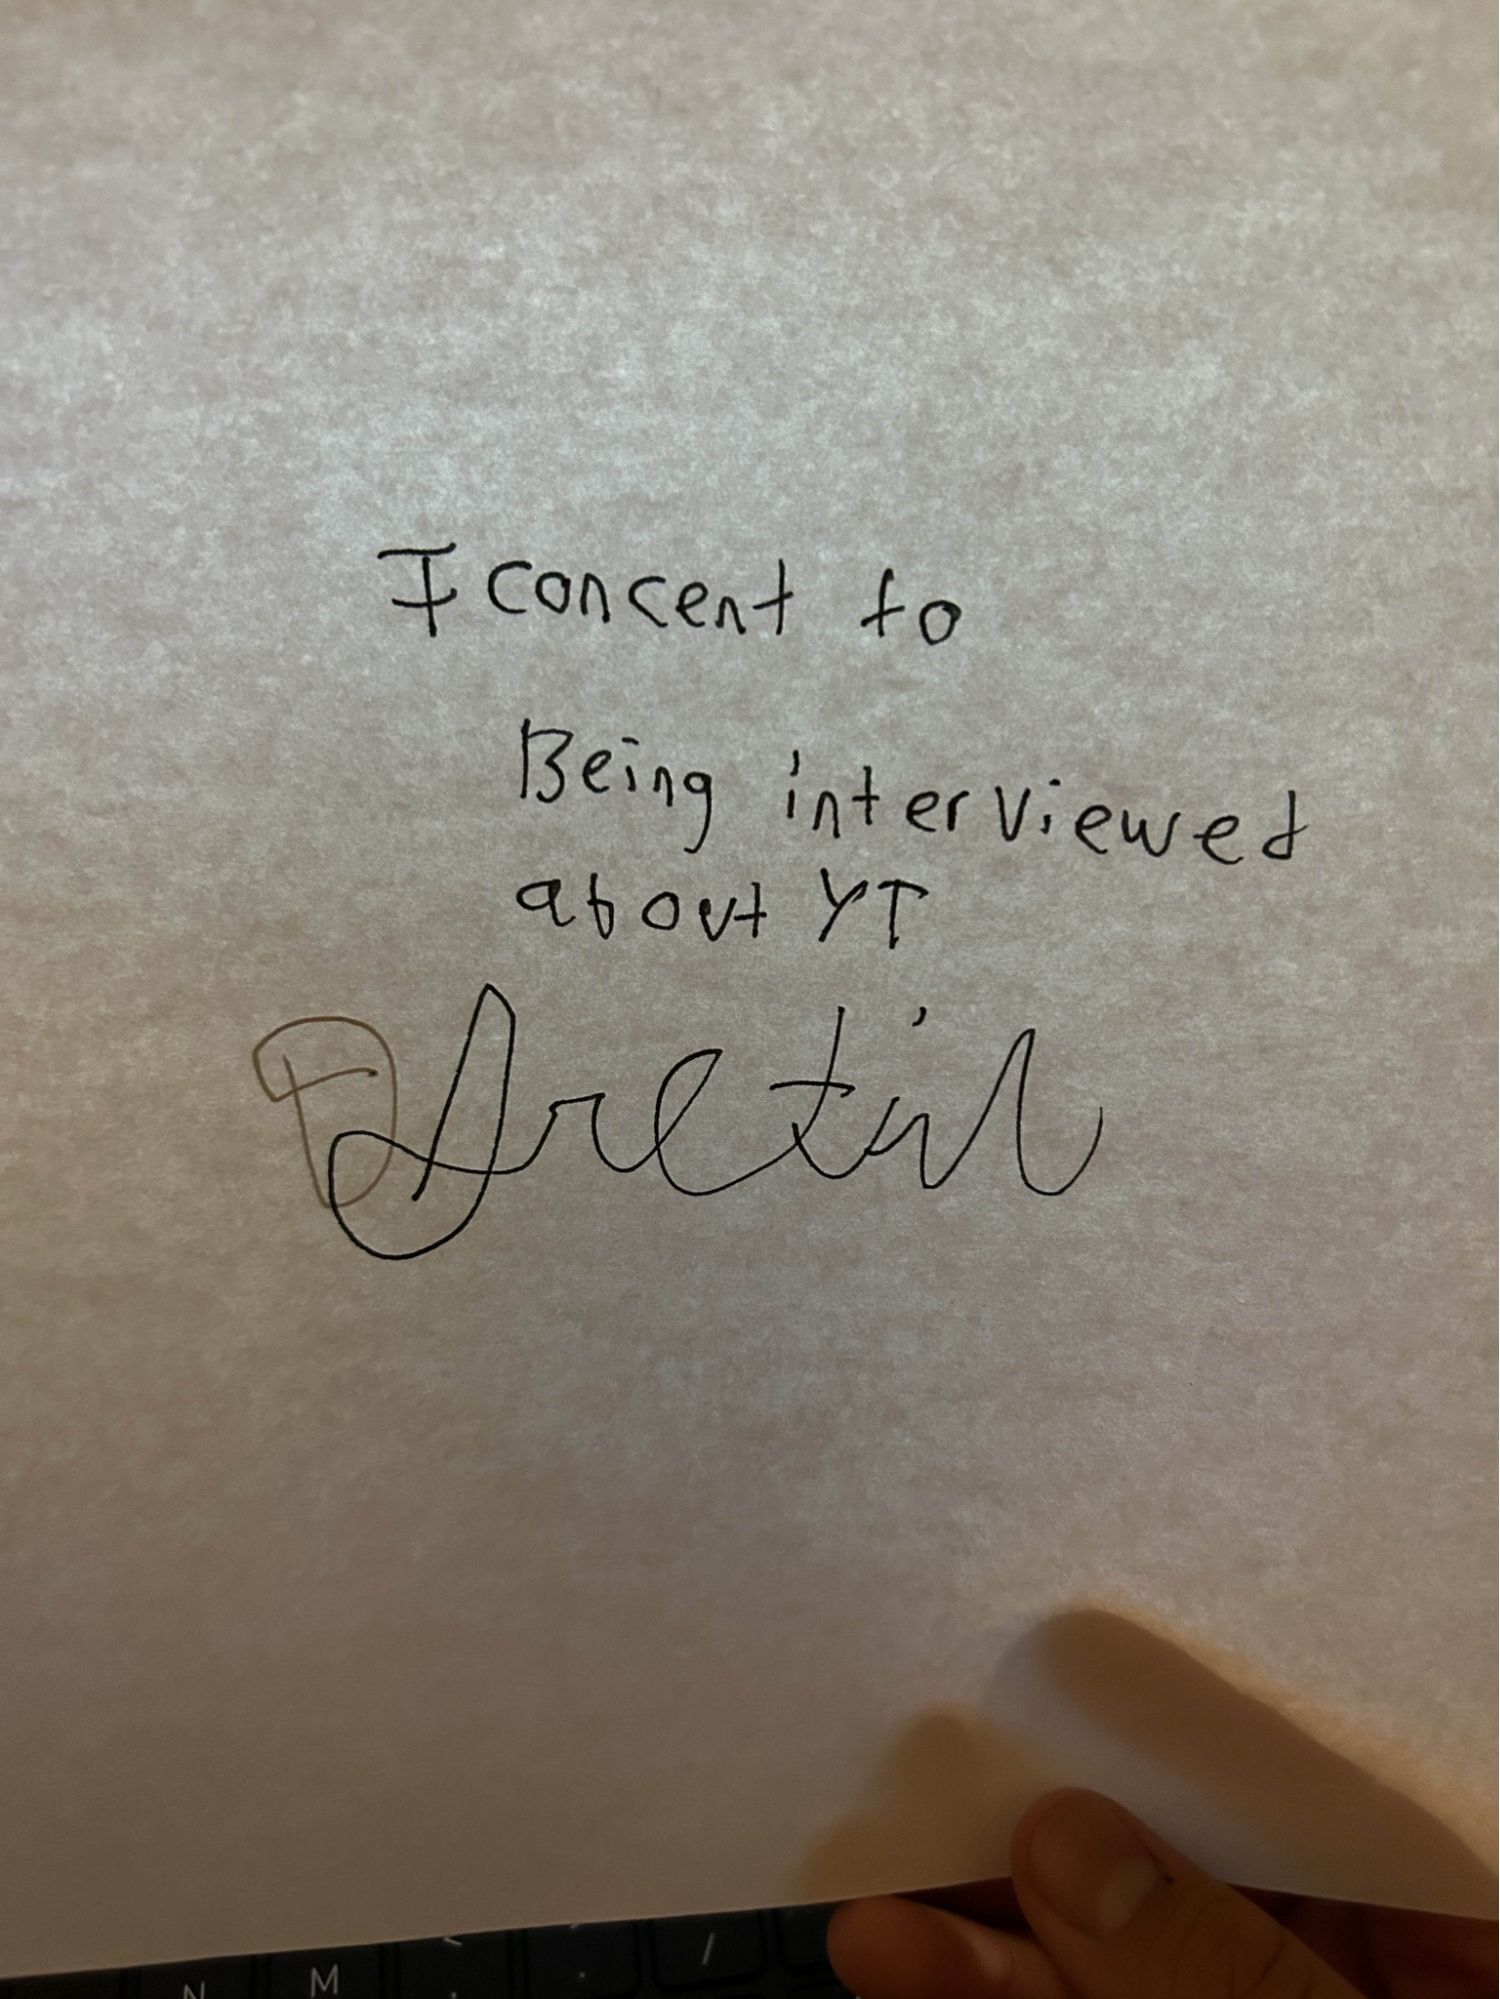 I concent to
Being interviewed
about YT
N M < . /